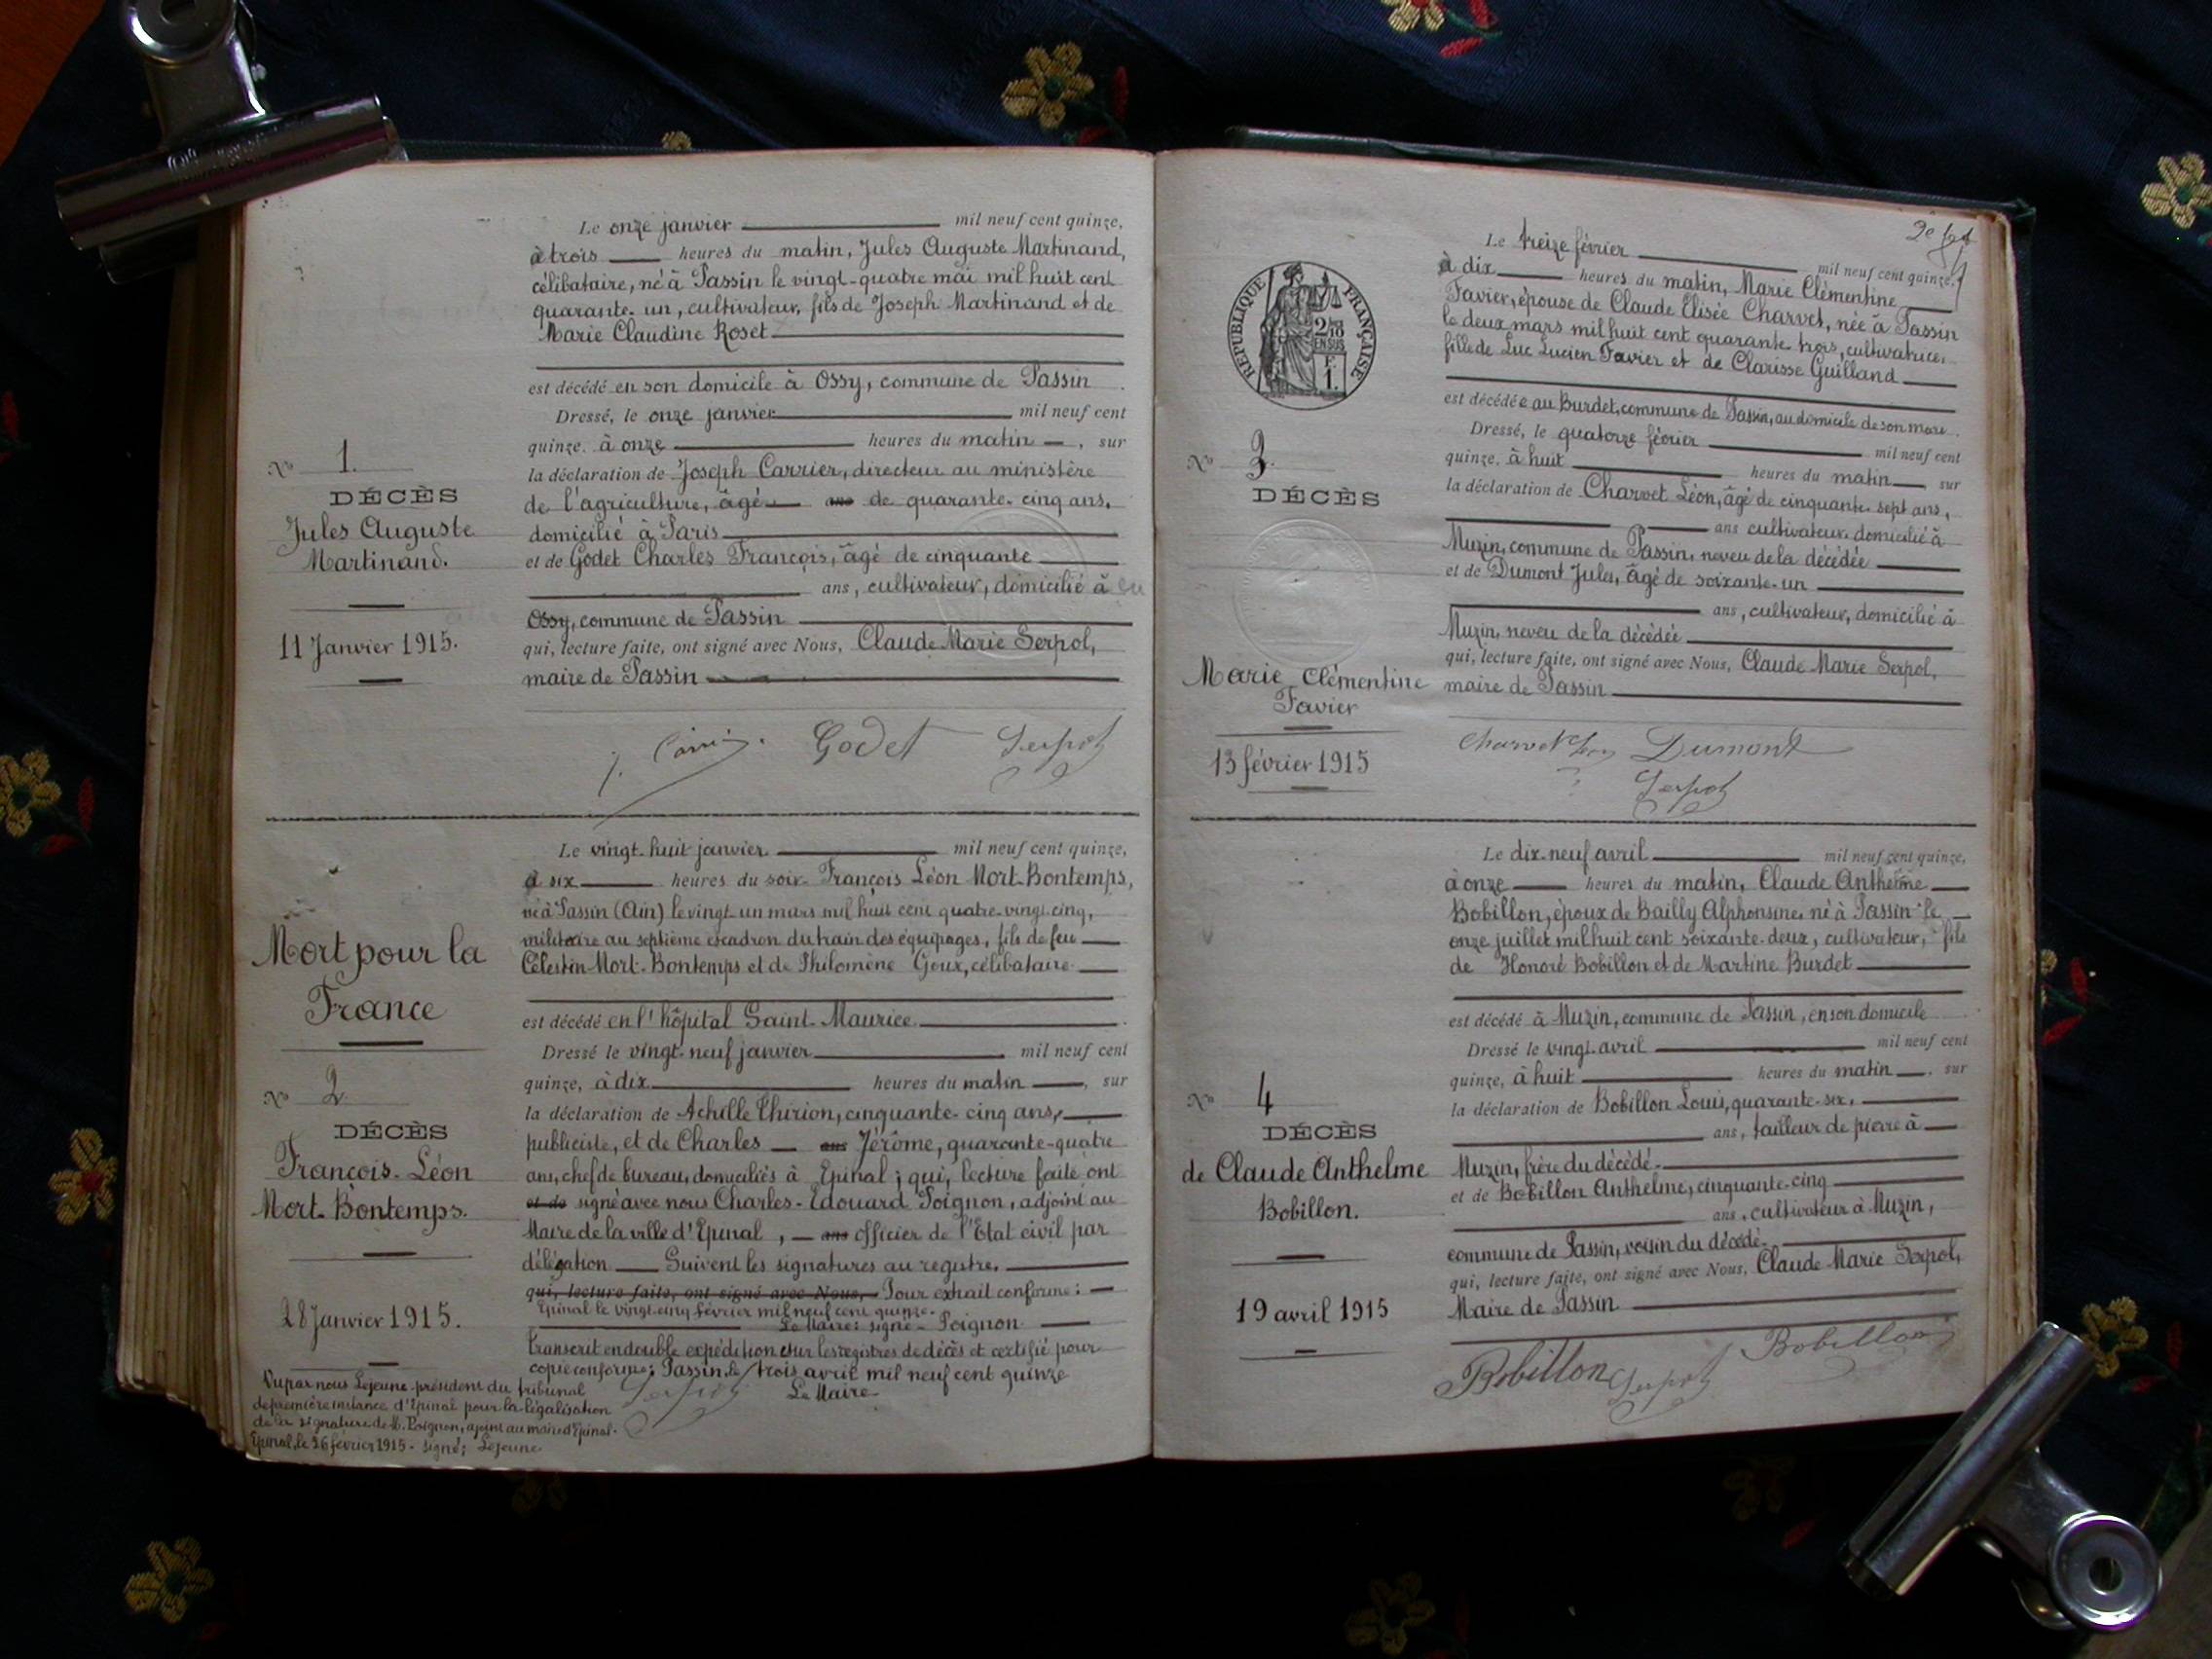 Le onze janvier mil neuf cent quinze,
à trois heures du matin, Jules Auguste Martinand,
célibataire, né à Passin le vingt-quatre mai mil huit cent
quarante-un, cultivateur, fils de Joseph Martinand et de
Marie Claudine Roset
est décédé en son domicile à Ossy, commune de Passin.
Dressé, le onze janvier mil neuf cent
quinze, à onze heures du matin, sur
la déclaration de Joseph Carrier, directeur au ministère
de l'agriculture, âgé ans de quarante-cinq ans,
domicilié à Paris
et de Godet Charles François, âgé de cinquante
ans, cultivateur, domicilié à
Ossy, commune de Passin
qui, lecture faite, ont signé avec Nous, Claude Marie Serpol,
maire de Passin
Godet Serpol
No 1.
DÉCÈS
Jules Auguste
Martinand.
11 Janvier 1915.
Le vingt-huit janvier mil neuf cent quinze,
à six heures du soir François Léon Mort-Bontemps,
né à Passin (Ain) le vingt-un mars mil huit cent quatre-vingt-cinq,
militaire au septième escadron du train des équipages, fils de feu
Célestin Mort-Bontemps et de Philomène Goux, célibataire
est décédé en l'hôpital Saint-Maurice
Dressé le vingt-neuf janvier mil neuf cent
quinze, à dix heures du matin, sur
la déclaration de Achille Thirion, cinquante-cinq ans,
publiciste, et de Charles ans Jérôme, quarante-quatre
ans, chef de bureau, domiciliés à Epinal ; qui, lecture faite, ont
et de signé avec nous Charles-Edouard Poignon, adjoint au
Maire de la ville d'Epinal, ans officier de l'Etat civil par
délégation Suivent les signatures au registre.
qui, lecture faite, ont signé avec Nous, Pour extrait conforme :
Epinal le vingt-cinq février mil neuf cent quinze.
Le Maire: signé - Poignon
Transcrit en double expédition sur les registres de décès et certifié pour
copie conforme; Passin, le trois avril mil neuf cent quinze
Serpol Le Maire
Mort pour la
France
No 2.
DÉCÈS
François-Léon
Mort-Bontemps.
28 Janvier 1915.
Vu par nous Lejeune président du tribunal
de première instance d'Epinal pour la légalisation
de la signature de M. Poignon, ajoint au maire d'Epinal.
Epinal, le 26 février 1915 - signé; Lejeune
Le treize février mil neuf cent quinze,
à dix heures du matin, Marie Clémentine
Favier, épouse de Claude Elisée Charvet, née à Passin
le deux mars mil huit cent quarante trois, cultivatrice,
fille de Luc Lucien Favier et de Clarisse Guilland
est décédée au Burdet, commune de Passin, au domicile de son mari.
Dressé, le quatorze février mil neuf cent
quinze, à huit heures du matin sur
la déclaration de Charvet Léon, âgé de cinquante-sept ans,
ans cultivateur domicilié à
Muzin, commune de Passin, neveu de la décédée
et de Dumont Jules, âgé de soixante-un
ans, cultivateur, domicilié à
Muzin, neveu de la décédée
qui, lecture faite, ont signé avec Nous, Claude Marie Serpol,
maire de Passin
Charvet Dumont
Serpol
RÉPUBLIQUE FRANÇAISE
2/10
EN SUS
F
1.
No 3.
DÉCÈS
Marie Clémentine
Favier
13 février 1915
Le dix-neuf avril mil neuf cent quinze,
à onze heures du matin, Claude Anthelme
Bobillon, époux de Bailly Alphonsine, né à Passin le
onze juillet mil huit cent soixante-deux, cultivateur, fils
de Honoré Bobillon et de Martine Burdet
est décédé à Muzin, commune de Passin, en son domicile
Dressé le vingt avril mil neuf cent
quinze, à huit heures du matin, sur
la déclaration de Bobillon Louis, quarante-six,
ans, tailleur de pierre à
Muzin, frère du décédé.
et de Bobillon Anthelme, cinquante-cinq
ans, cultivateur à Muzin,
commune de Passin, voisin du décédé.
qui, lecture faite, ont signé avec Nous, Claude Marie Serpol,
Maire de Passin
Bobillon Serpol Bobillon
No 4
DÉCÈS
de Claude Anthelme
Bobillon.
19 avril 1915